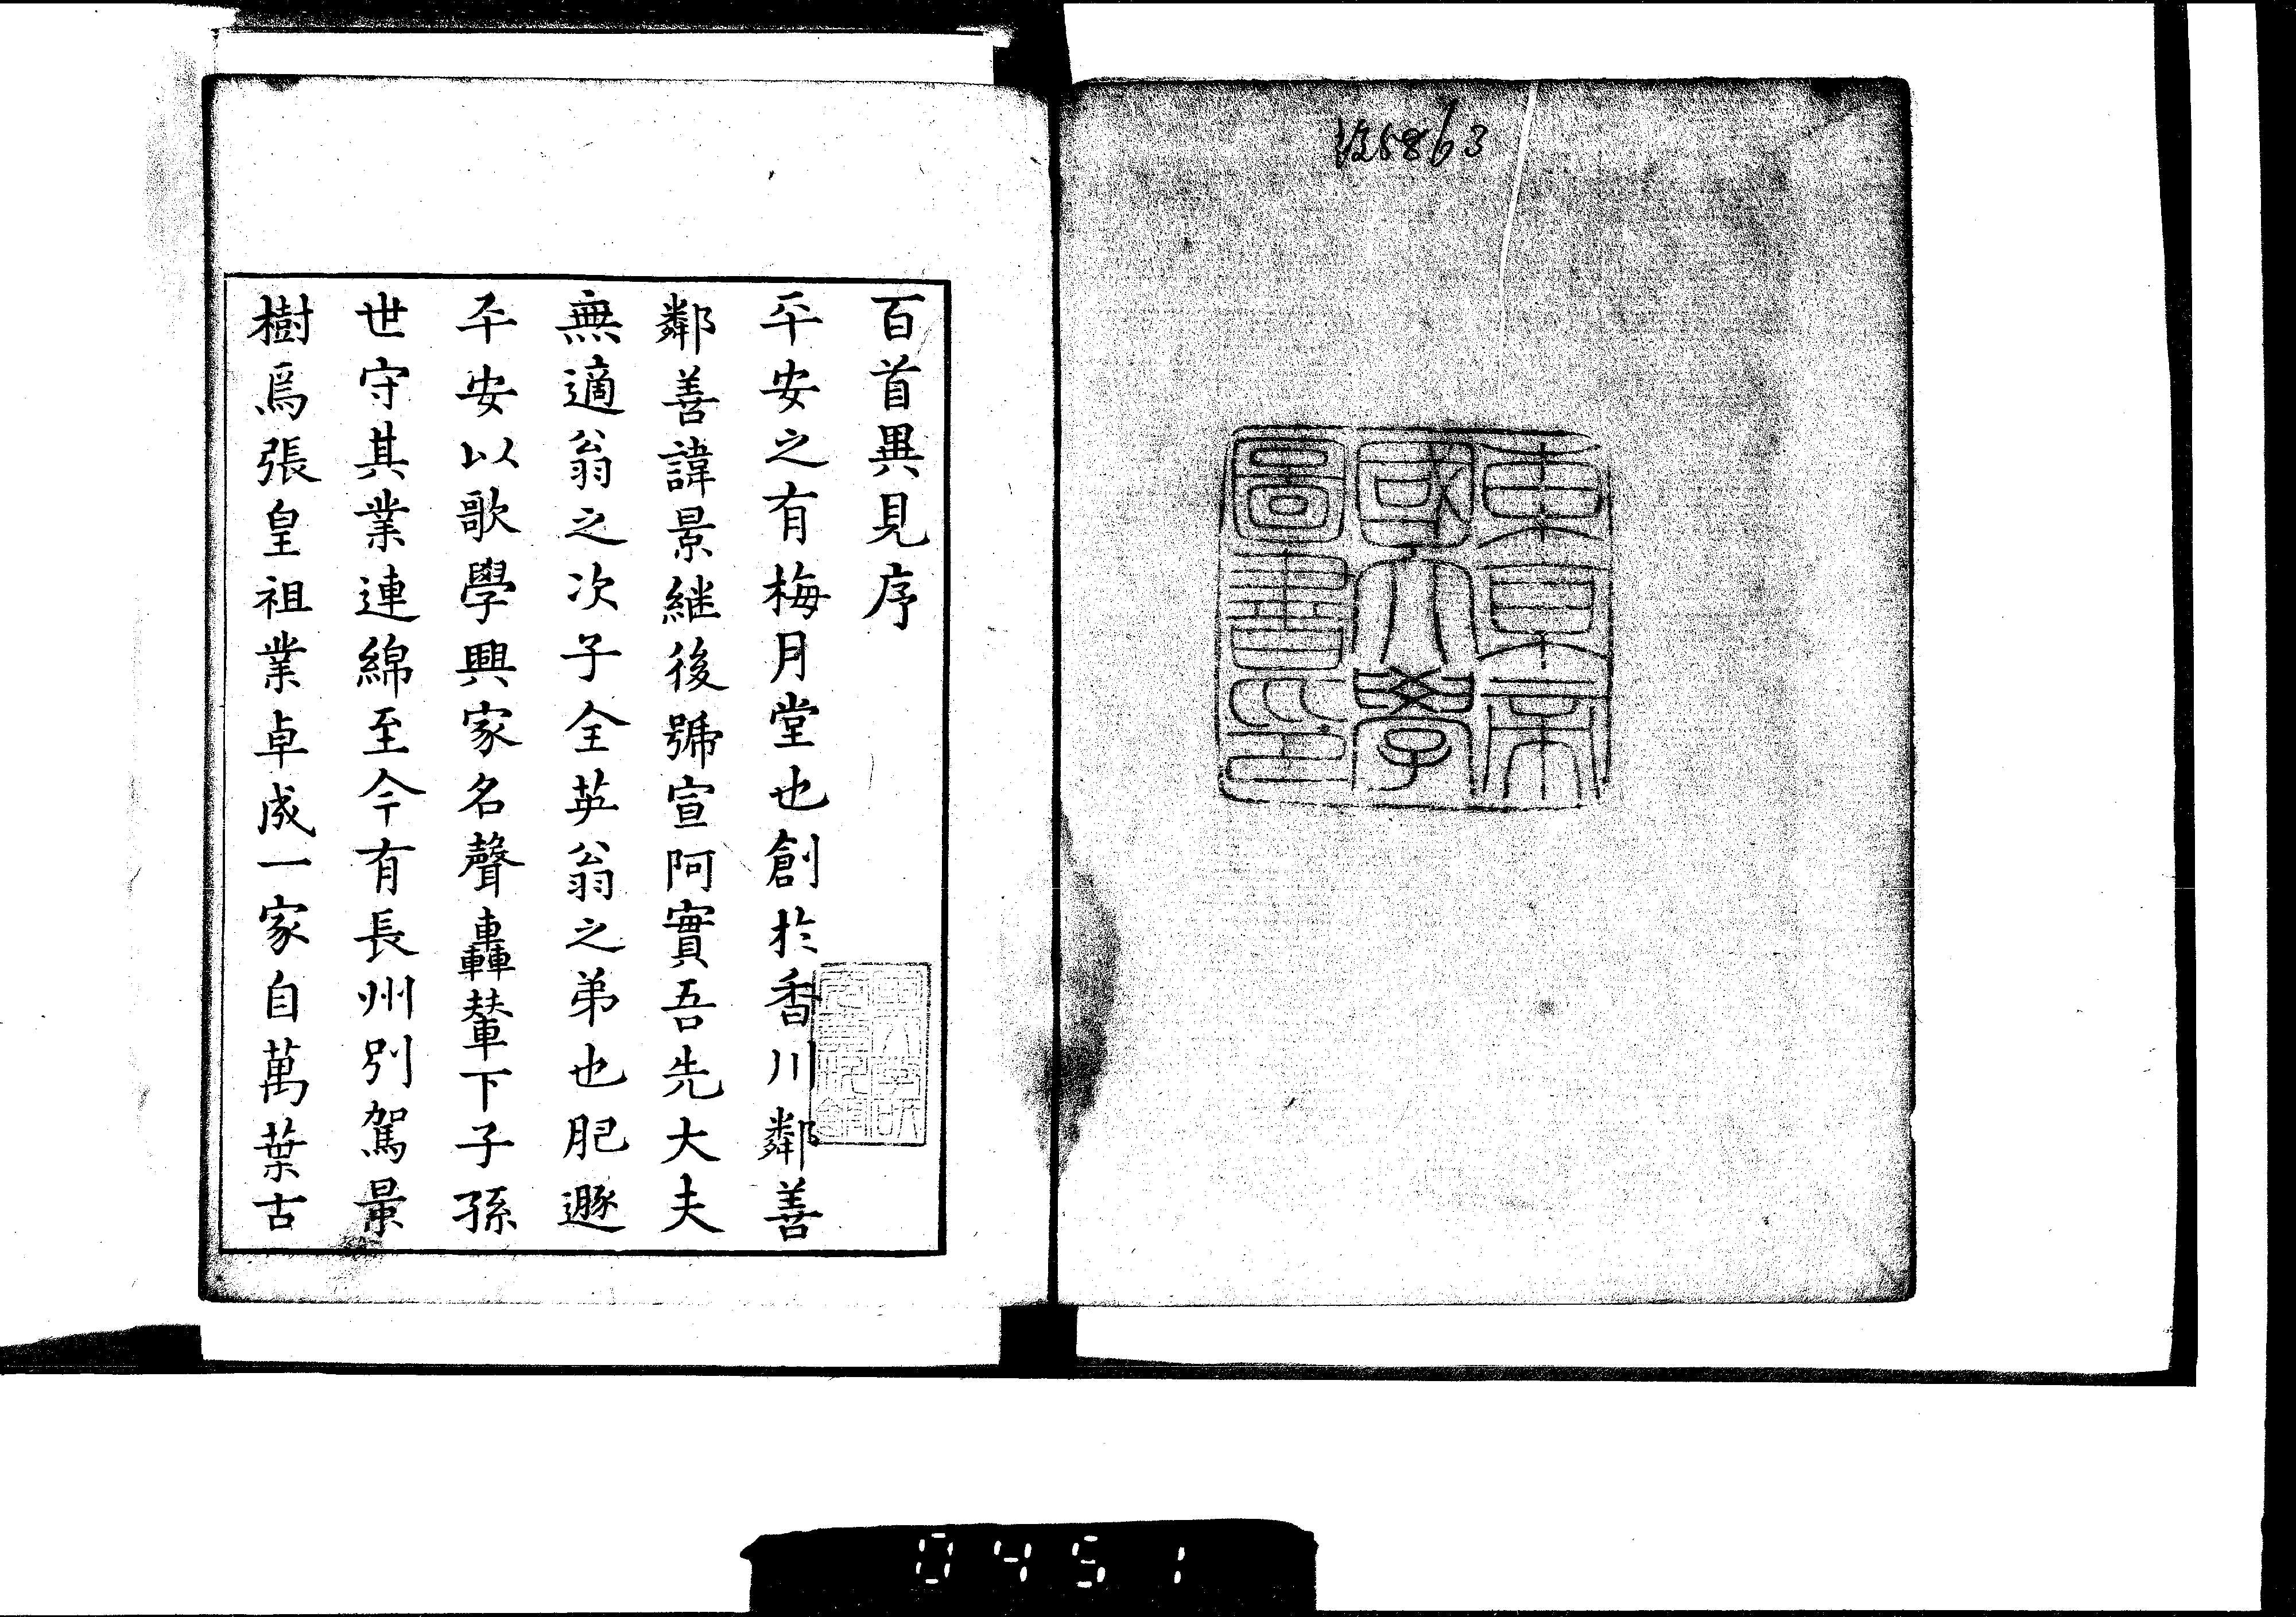 5863
東京帝
國大學
圖書印
百首異見序
平安之有梅月堂也創於香川鄰善
鄰善諱景継後號宣阿實吾先大夫
無適翁之次子全英翁之弟也肥遯
平安以歌學興家名聲轟輦下子孫
世守其業連綿至今有長州別駕景
樹焉張皇祖業卓成一家自萬葉古
0451